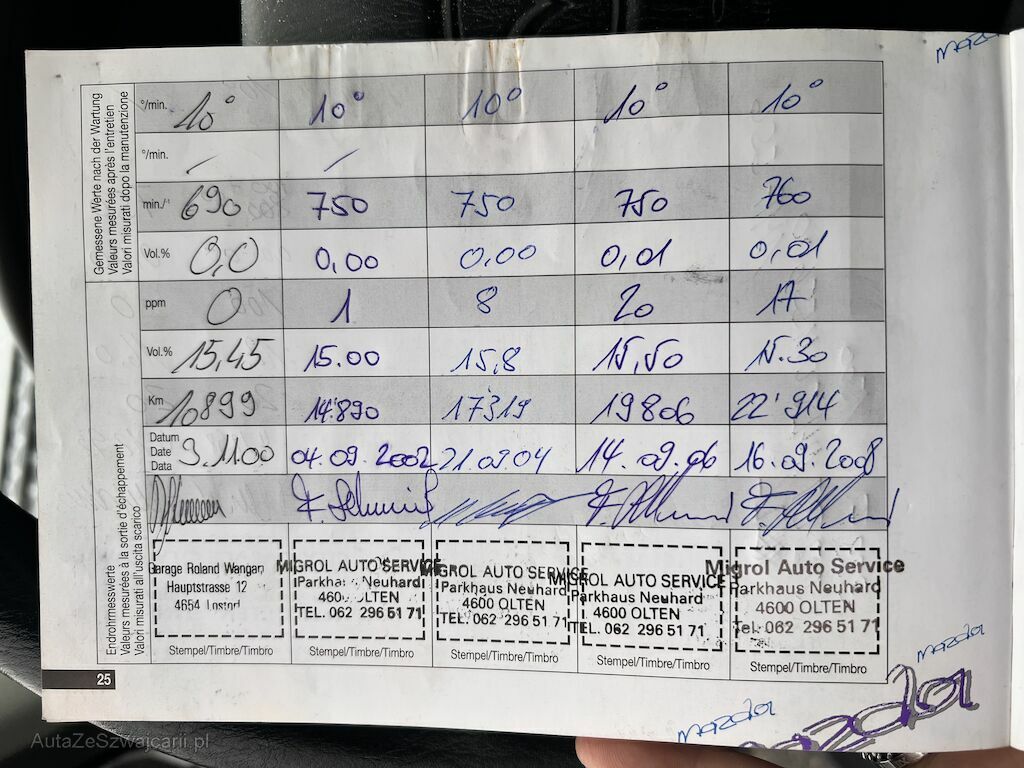 mazda
Gemessene Werte nach der Wartung
Valeurs mesurées après l'entretien
Valori misurati dopo la manutenzione
°/min. 10° 10° 10° 10° 10°
°/min. / /
min./¹ 690 750 750 750 760
Vol.% 0,0 0,00 0,00 0,01 0,01
ppm 0 1 8 20 17
Vol.% 15,45 15.00 15,8 15,50 15.30
Endrohrmesswerte
Valeurs mesurées à la sortie d'échappement
Valori misurati all'uscita scarico
Km 10899 14'890 17'319 19806 22'914
Datum
Date
Data
9.11.00 04.09.2002 21.09.04 14.09.06 16.09.2008
Garage Roland Wangart
Hauptstrasse 12
4654 Lostorf
MIGROL AUTO SERVICE
Parkhaus Neuhard
4600 OLTEN
TEL. 062 296 51 71
MIGROL AUTO SERVICE
Parkhaus Neuhard
4600 OLTEN
TEL. 062 296 51 71
MIGROL AUTO SERVICE
Parkhaus Neuhard
4600 OLTEN
TEL. 062 296 51 71
Migrol Auto Service
Parkhaus Neuhard
4600 OLTEN
Tel. 062 296 51 71
Stempel/Timbre/Timbro Stempel/Timbre/Timbro Stempel/Timbre/Timbro Stempel/Timbre/Timbro Stempel/Timbre/Timbro
25
mazda
mazda
mazda
AutaZeSzwajcarii.pl